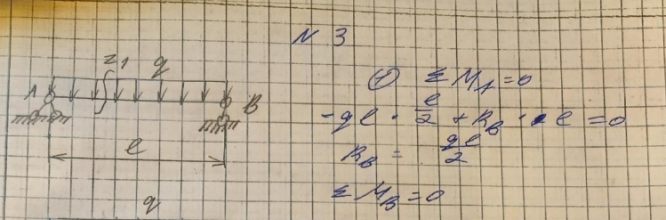 N 3
z1 q
A B
l
q
⊕ ΣM_A=0
-ql · l/2 + R_B · l = 0
R_B = ql/2
ΣM_B=0